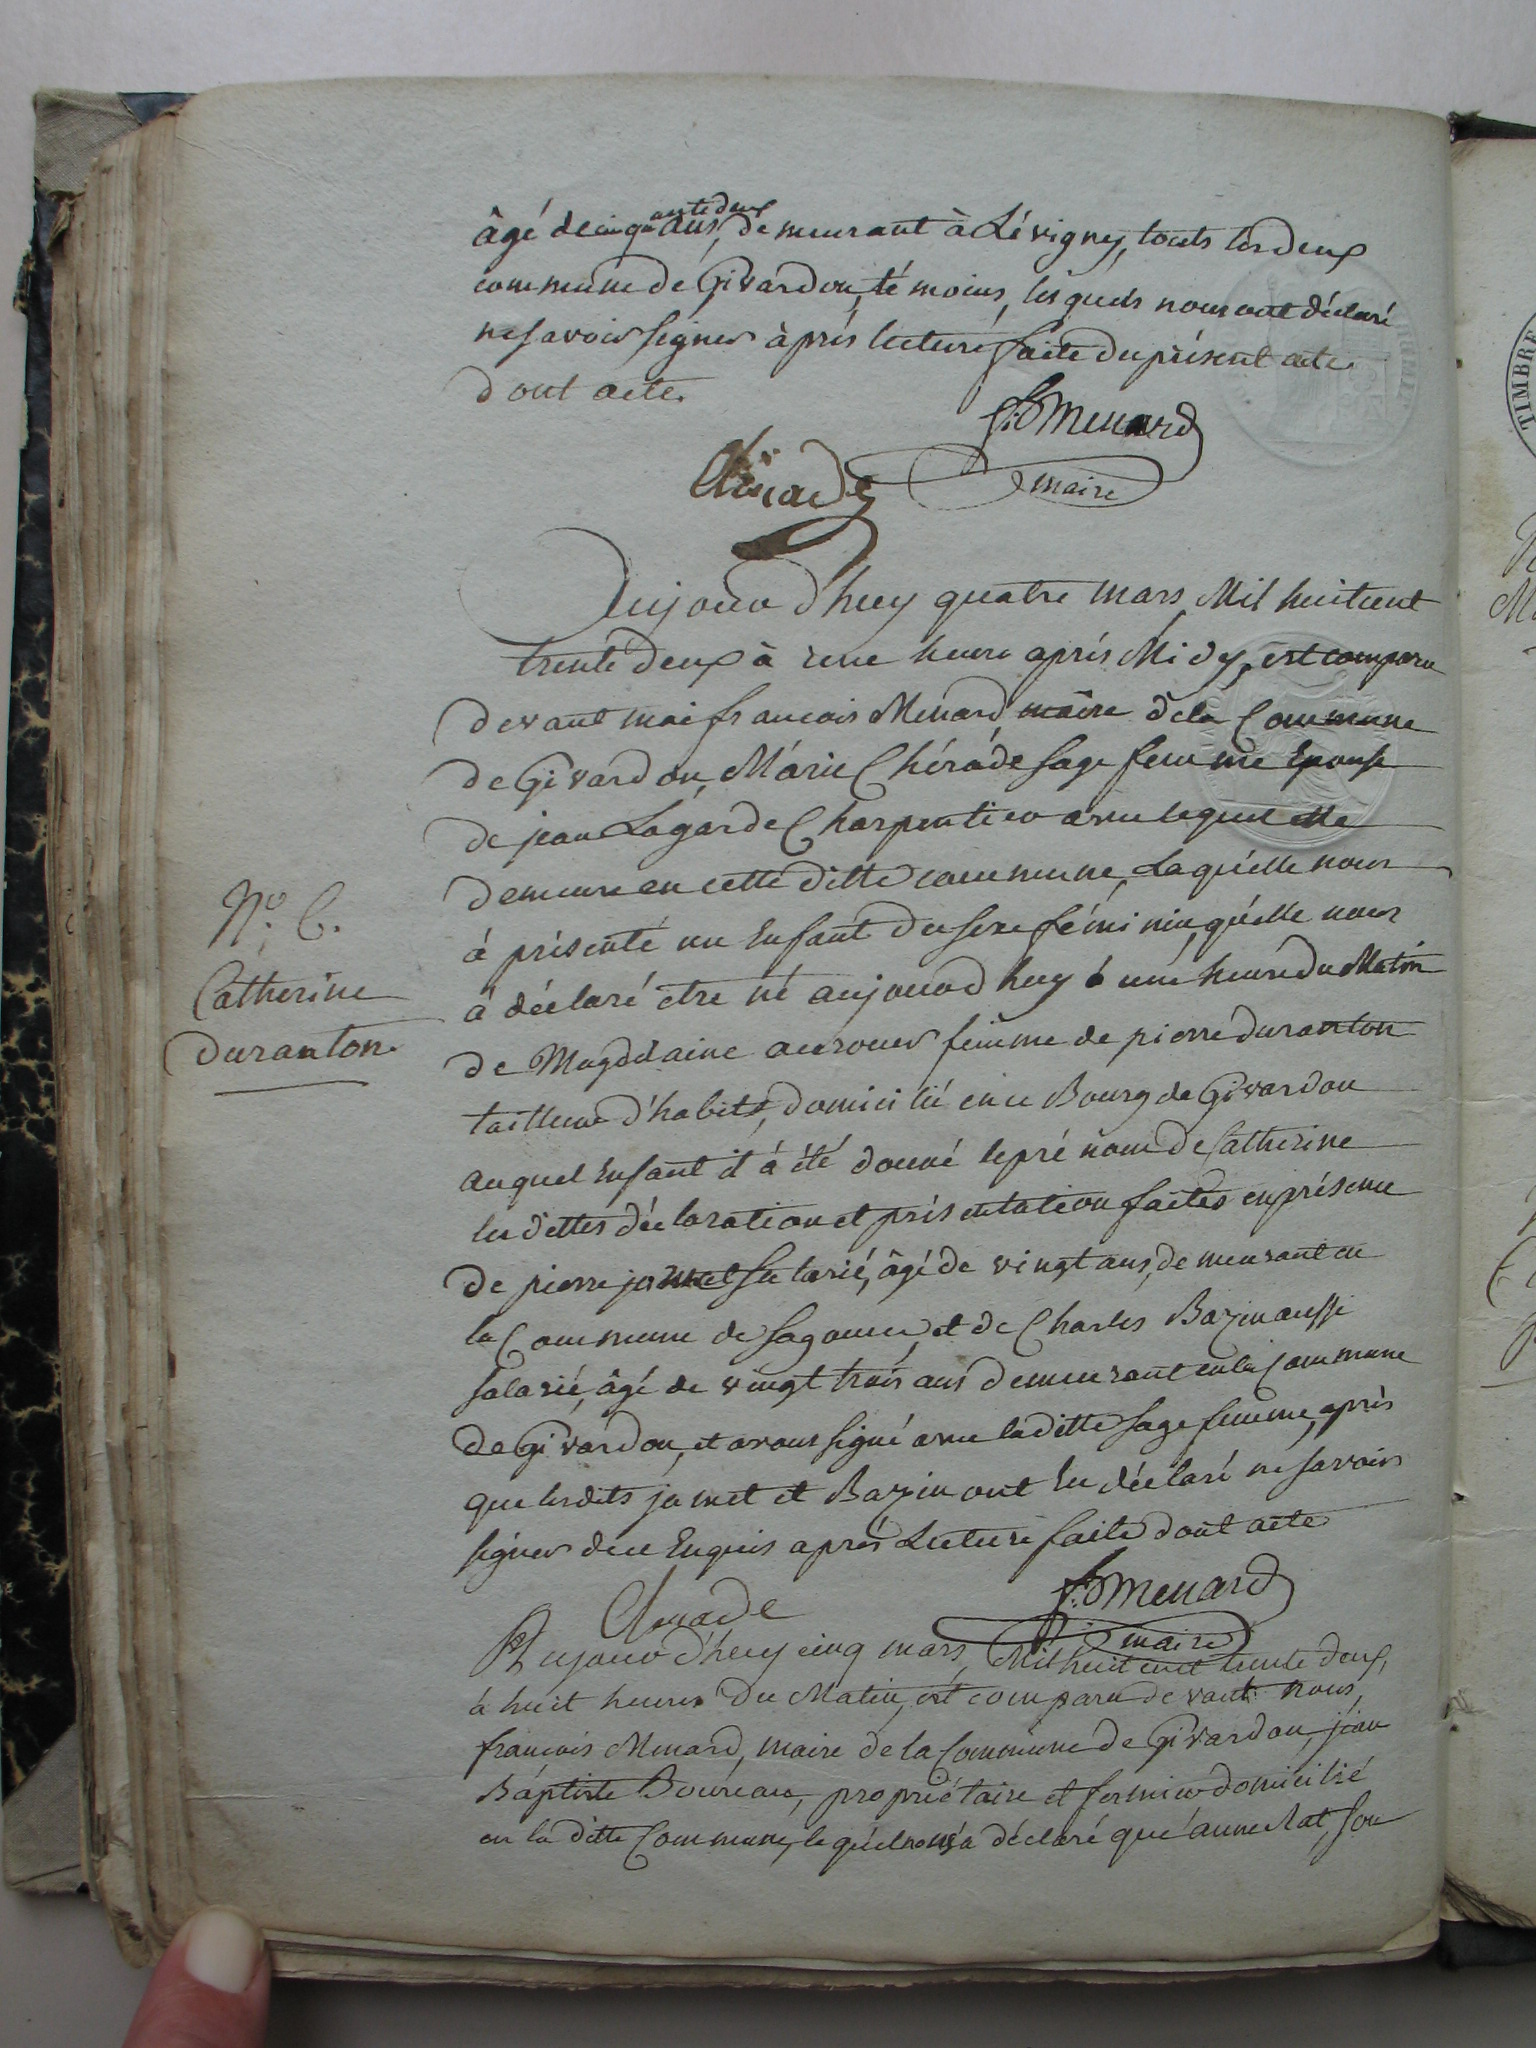 âgé de cinquante deux ans, demeurant à Lévigny, touts les deux
commune de Givardon, témoins, lesquels nous ont déclaré
ne savoir signer après lecture faite du présent acte
dont acte.
f. Menard
maire
Chérade
Aujourd'huy quatre mars Mil huit cent
trente deux à une heure après Midy, est comparu
devant moi francois Menard maire de la Commune
de Givardon, Marie Chérade sage femme Epouse
de jean Lagarde Charpentier avec lequel elle
demeure en cette ditte commune, Laquelle nous
à présenté un Enfant du sexe féminin, qu'elle nous
à déclaré être né aujourd'huy à une heure du Matin
de Magdelaine femme de pierre duranton
tailleur d'habits, domicilié en ce Bourg de Givardon
auquel Enfant il à été donné le pré nom de Catherine
les dittes déclaration et présentation faites en présence
de pierre jamet salarié, âgé de vingt ans, demeurant en
la Commune de Sagonne, et de Charles Bazin aussi
salarié, âgé de vingt trois ans demeurant en la Commune
de Givardon, et avons signé avec la ditte sage femme, après
que les dits jamet et Bazin ont Eu déclaré ne savoir
signer de ce Enquis après Lecture faite dont acte
No. 6.
Catherine
duranton.
Cherade
f. Menard
maire
Aujourd'huy cinq mars, Mil huit cent trente deux,
à huit heures du Matin, est comparu devant nous,
francois Menard, maire de la Commune de Givardon, jean
Baptiste Boureau, propriétaire et fermier domicilié
en la ditte Commune, lequel nous a déclaré que anne Rat, son
TIMBRE